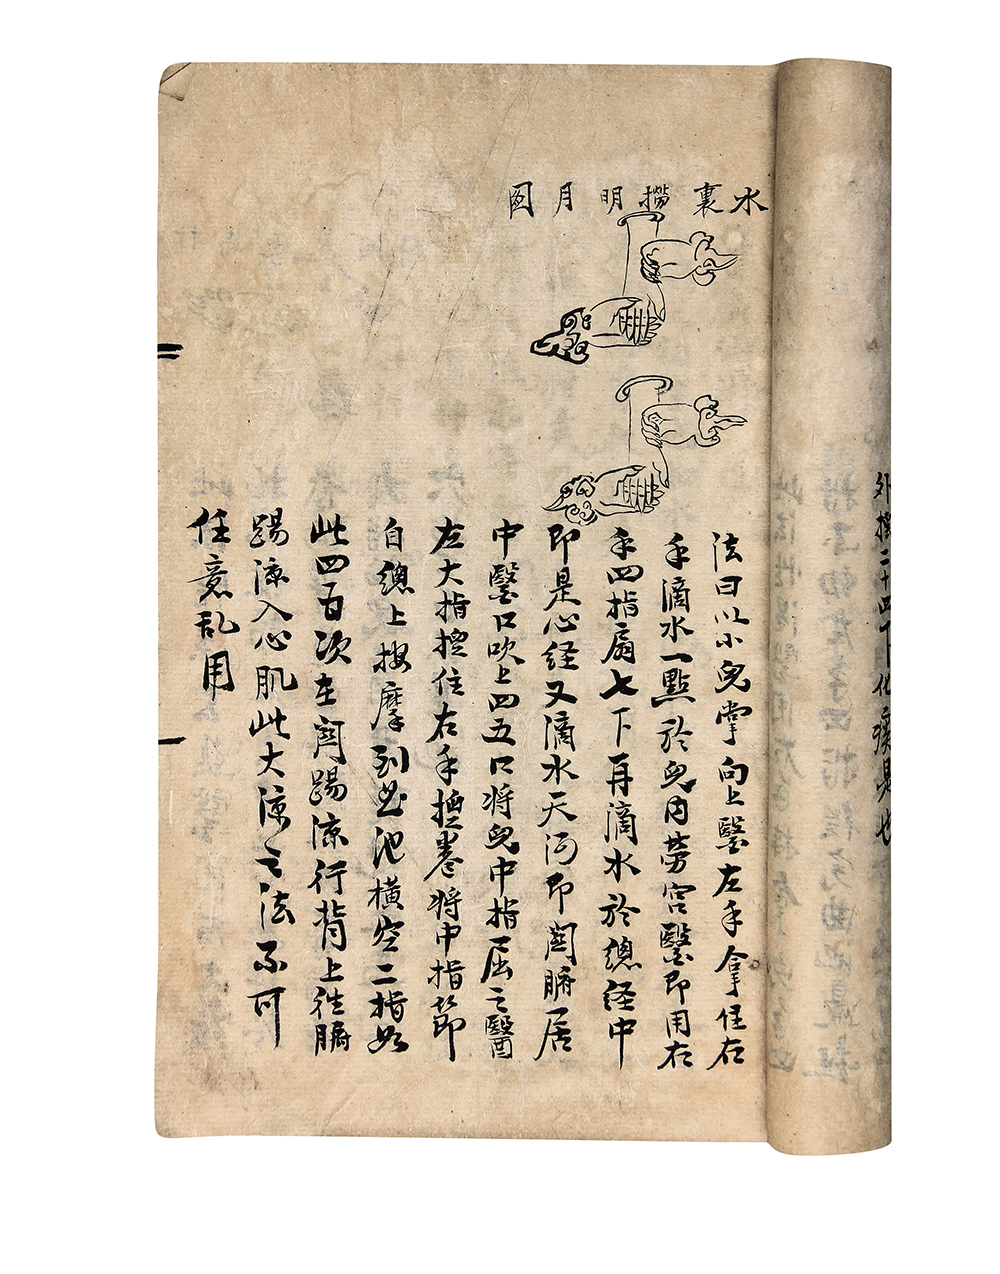 水裏撈明月圖
法曰以小兒掌向上醫左手拿住右
手滴水一點於兒內劳宮醫即用右
手四指扇七下再滴水於總经中
即是心経又滴水天河即関腑居
中醫口吹上四五口将兒中指屈之醫
左大指掐住右手捏卷将中指節
自總上按摩到曲池橫空二指如
此四五次在関踢凉行背上往腑
踢凉入心肌此大凉之法不可
任意乱用
外揉二十四下化痰是也